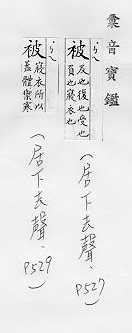 彙音寶鑑
ㄅㄟ
被
及也復也受也
負也寢衣也
(居下去聲、
P527)
ㄅㄟ
被
寢衣所以
蓋體禦寒
(居下去聲、
P529)